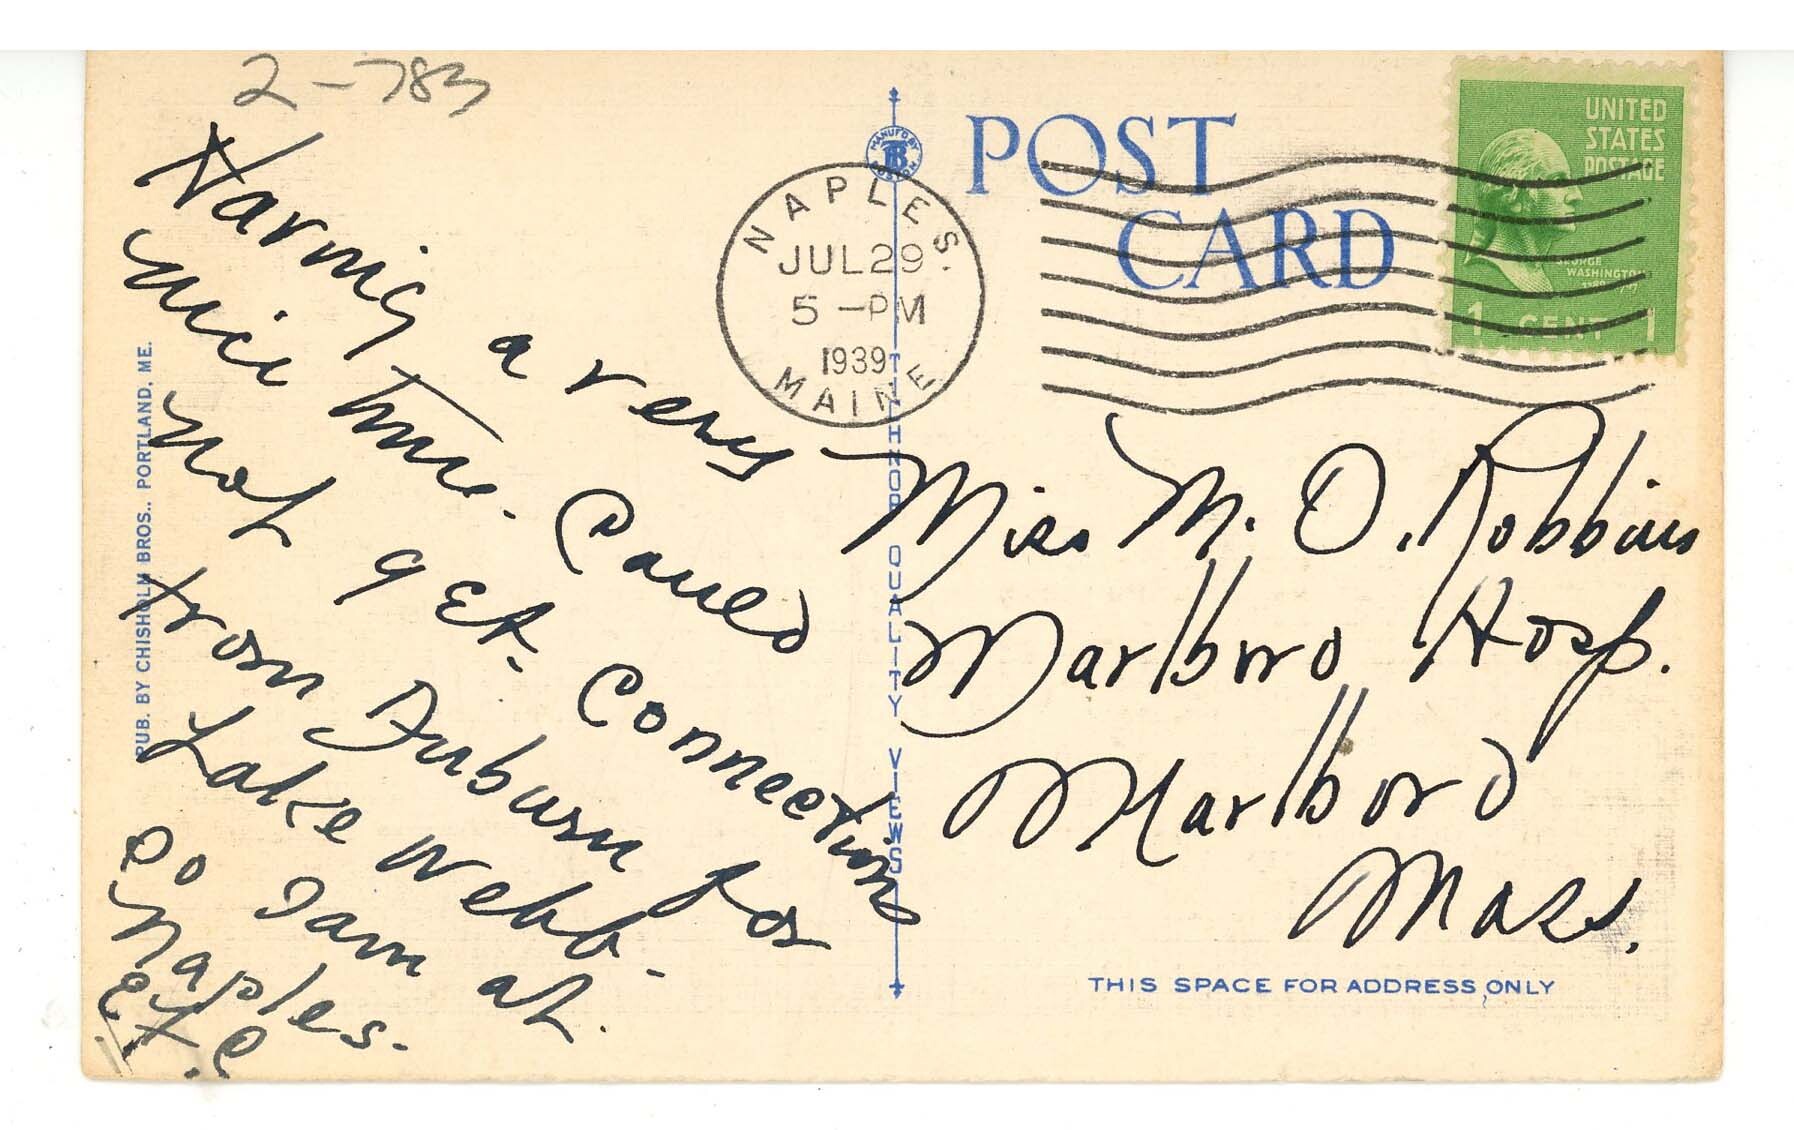 2-783
Having a very
nice time. Could
not get connections
from Auburn for
Lake Webb.
so I am at
Naples.
E. F. C
PUB. BY CHISHOLM BROS., PORTLAND, ME.
MANUF'D BY
BOSTON
TICHNOR QUALITY VIEWS
POST
CARD
NAPLES.
JUL 29
5-PM
1939
MAINE
UNITED
STATES
POSTAGE
GEORGE
WASHINGTON
1 CENT 1
Miss M. O. Robbins
Marlboro Hosp.
Marlboro
Mass.
THIS SPACE FOR ADDRESS ONLY